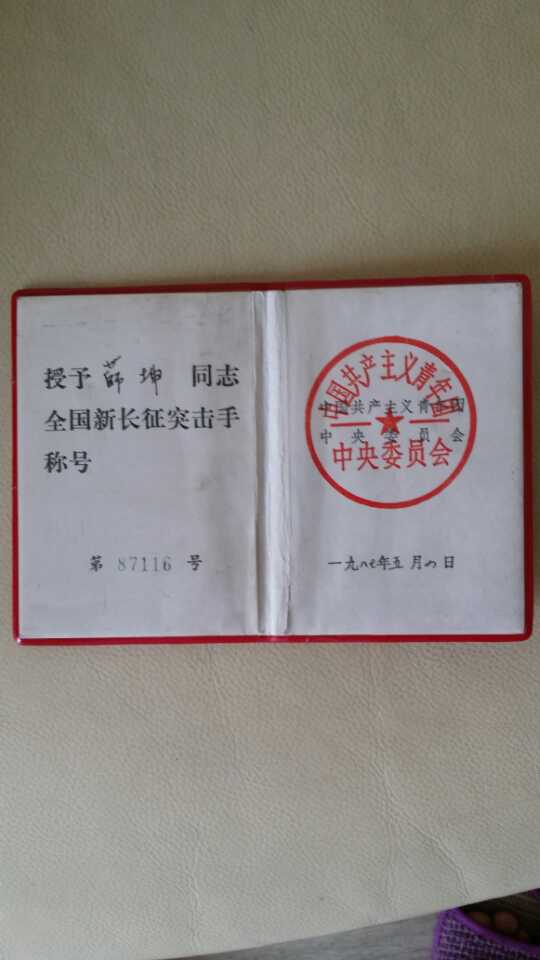 授予 薛坤 同志
全国新长征突击手
称号
第 87116 号
中国共产主义青年团
中央委员会
中国共产主义青年团
中央委员会
一九八七年五月四日